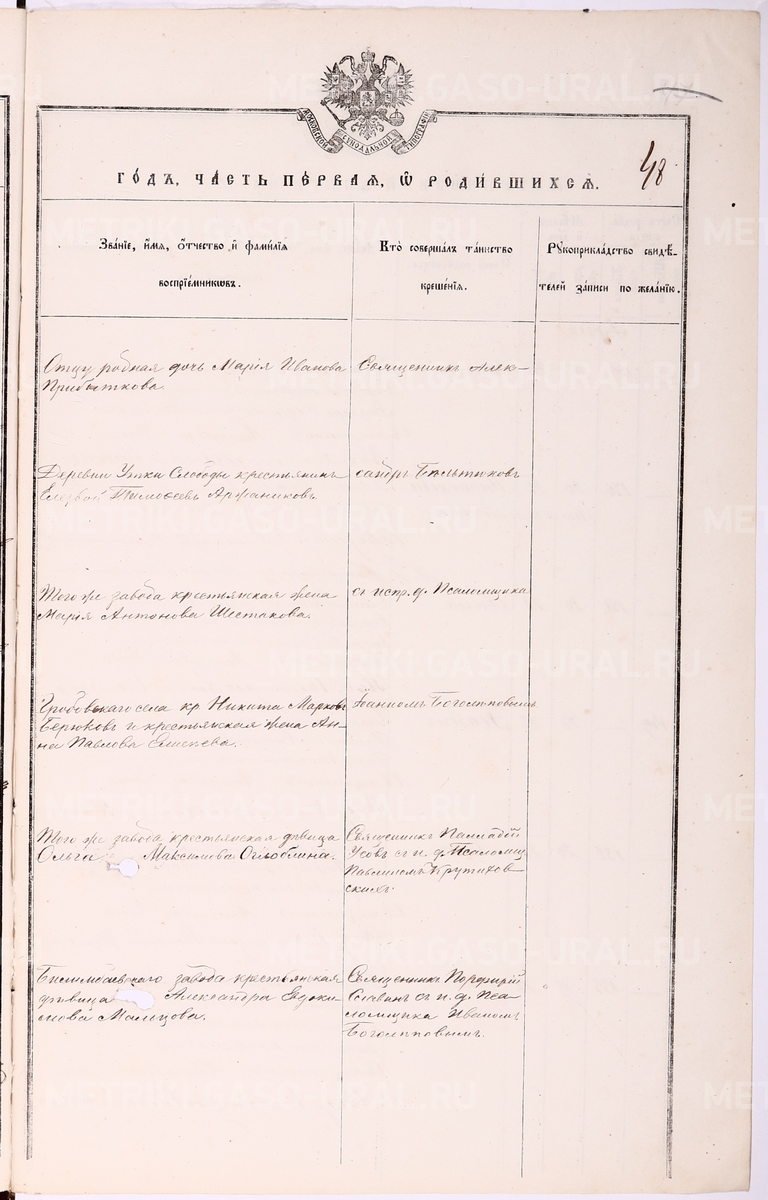 МОСКОВСКОЙ СѴНОДАЛЬНОЙ ТИПОГРАФІИ
48
ГОДЪ, ЧАСТЬ ПЕРВАЯ, Ѡ РОДИВШИХСЯ.
Званіе, имя, отчество и фамилія
воспріемниковъ.
Кто совершалъ таинство
крещенія.
Рукоприкладство свидѣ-
телей записи по желанію.
Отцу родная дочь Марія Иванова
Прибыткова.
Священникъ Алек-
Деревни Утки Слободы крестьянинъ
Тимоѳеевъ
сандръ Бѣльтюковъ
Того же завода крестьянская жена
Марія Антонова Шестакова.
съ испр. д. Псаломщика
Гробовскаго села кр. Никита Марковъ
Берюковъ и крестьянская жена Ан-
на Павлова Елисѣева.
Іоанномъ Боголѣповымъ
Того же завода крестьянская дѣвица
Ольга Максимова Оглоблина.
Священникъ Палладій
Усовъ съ и. д. Псаломщ.
Павлиномъ Крутихов-
скимъ.
Билимбаевскаго завода крестьянская
дѣвица Александра Евдоки-
мова Мальцова.
Священникъ Порфирій
Славнинъ съ и. д. Пса-
ломщика Иваномъ
Боголѣповымъ.
METRIKI.GASO-URAL.RU